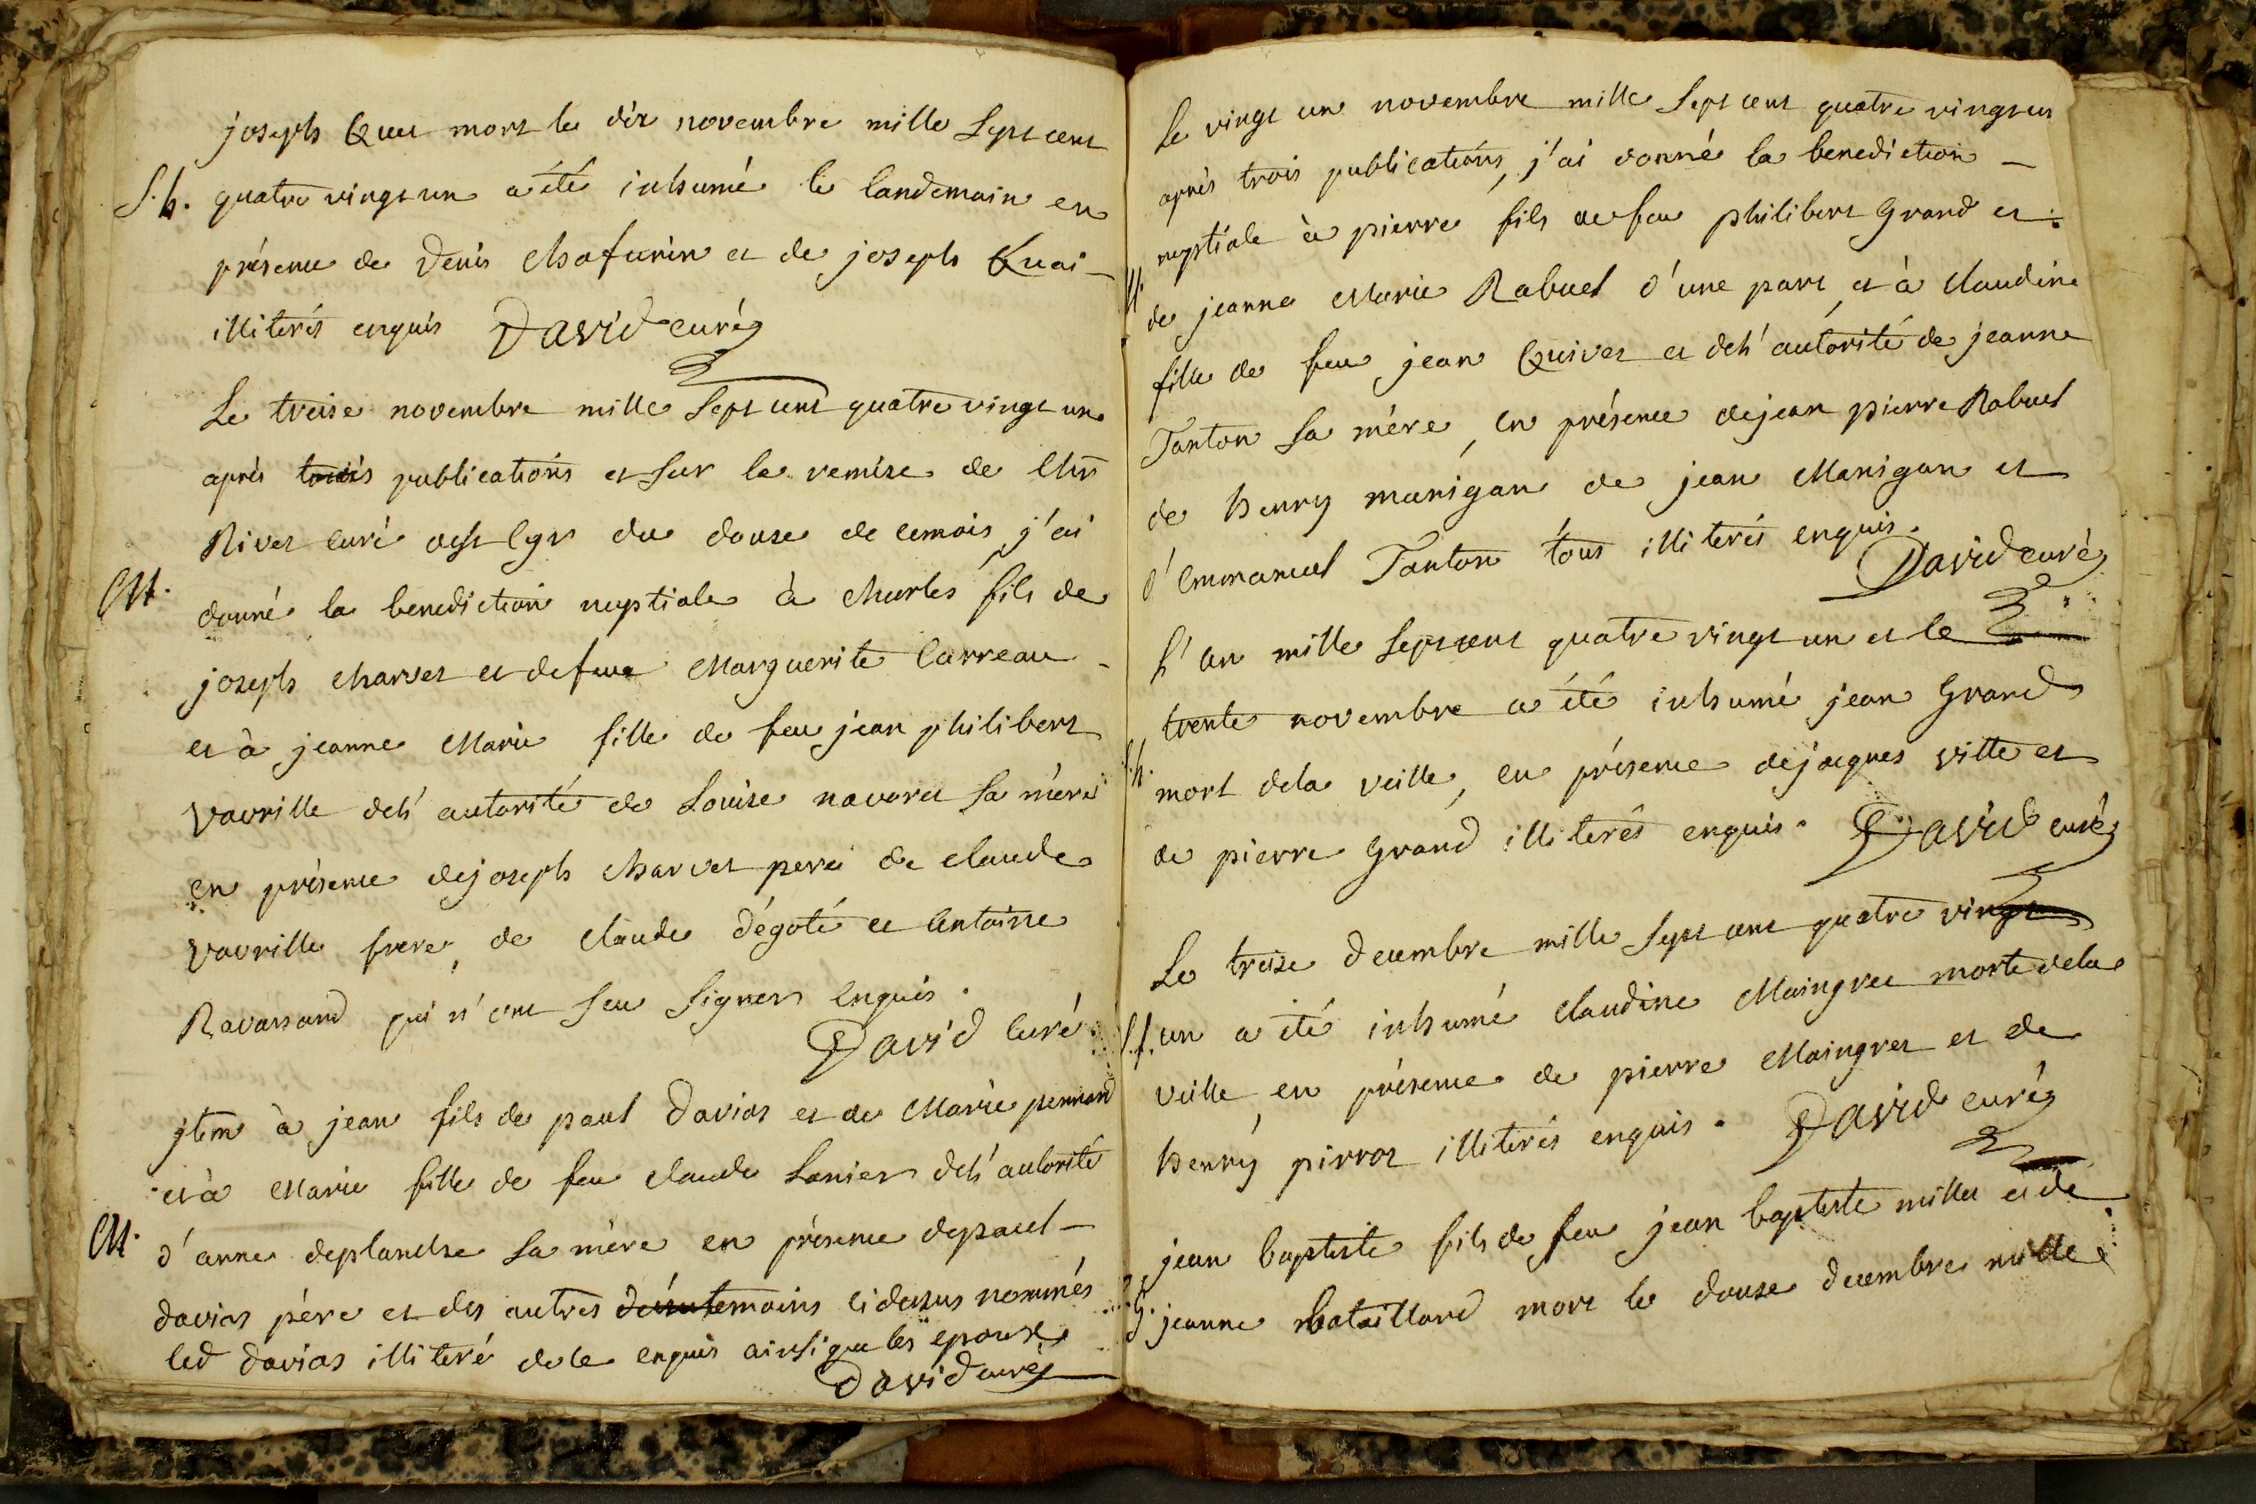 joseph Quei mort le dix novembre mille sept cent
S. h. quatre vingt un a été inhumé le landemain en
présence de denis Chafurin et de joseph Quai
illiterés enquis David curé
Le treise novembre mille sept cent quatre vingt un
après trois publications et sur la remise de Mr
Rivet curé de st Cyr du douse de ce mois, j'ai
M. donné la benediction nuptiale à Charles fils de
joseph Charvet et de feue Marguerite Carreau
et à jeanne Marie fille de feu jean philibert
vavrille de l'autorité de Louise navaret sa mère
en présence de joseph Charvet pere de claude
vavrille frere, de claude dégoté et Antoine
Ravassand qui n'ont seu signer enquis.
David Curé
jtem à jean fils de paul davias et de Marie pennand
et à Marie fille de feu claude Lanier de l'autorité
M. d'anne deplanche sa mère en présence de paul
davias père et des autres temoins ci dessus nommés
led davias illiteré de ce enquis ainsi que les epoux
David curé
Le vingt un novembre mille sept cent quatre vingt un
après trois publications, j'ai donné la benediction
nuptiale à pierre fils de feu philibert Grand et
M. de jeanne Marie Rabuel d'une part, et à Claudine
fille de feu jean Quivet et de l'autorité de jeanne
Tanton sa mére, en présence de jean pierre Rabuel
de henry manigan de jean Manigan et
d'emmanuel Tanton tous illiterés enquis.
David curé
L'an mille sept cent quatre vingt un et le
trente novembre a été inhumé jean Grand
S. h. mort de la veille, en présence de jacques vitte et
de pierre Grand illiterés enquis. David curé
Le treise decembre mille sept cent quatre vingt
S. f. un a été inhumé claudine Maingret morte de la
veille, en présence de pierre Maingret et de
henry pirrot illiterés enquis. David curé
jean baptiste fils de feu jean baptiste millet et de
S. jeanne Bataillard mort le douse decembre mille